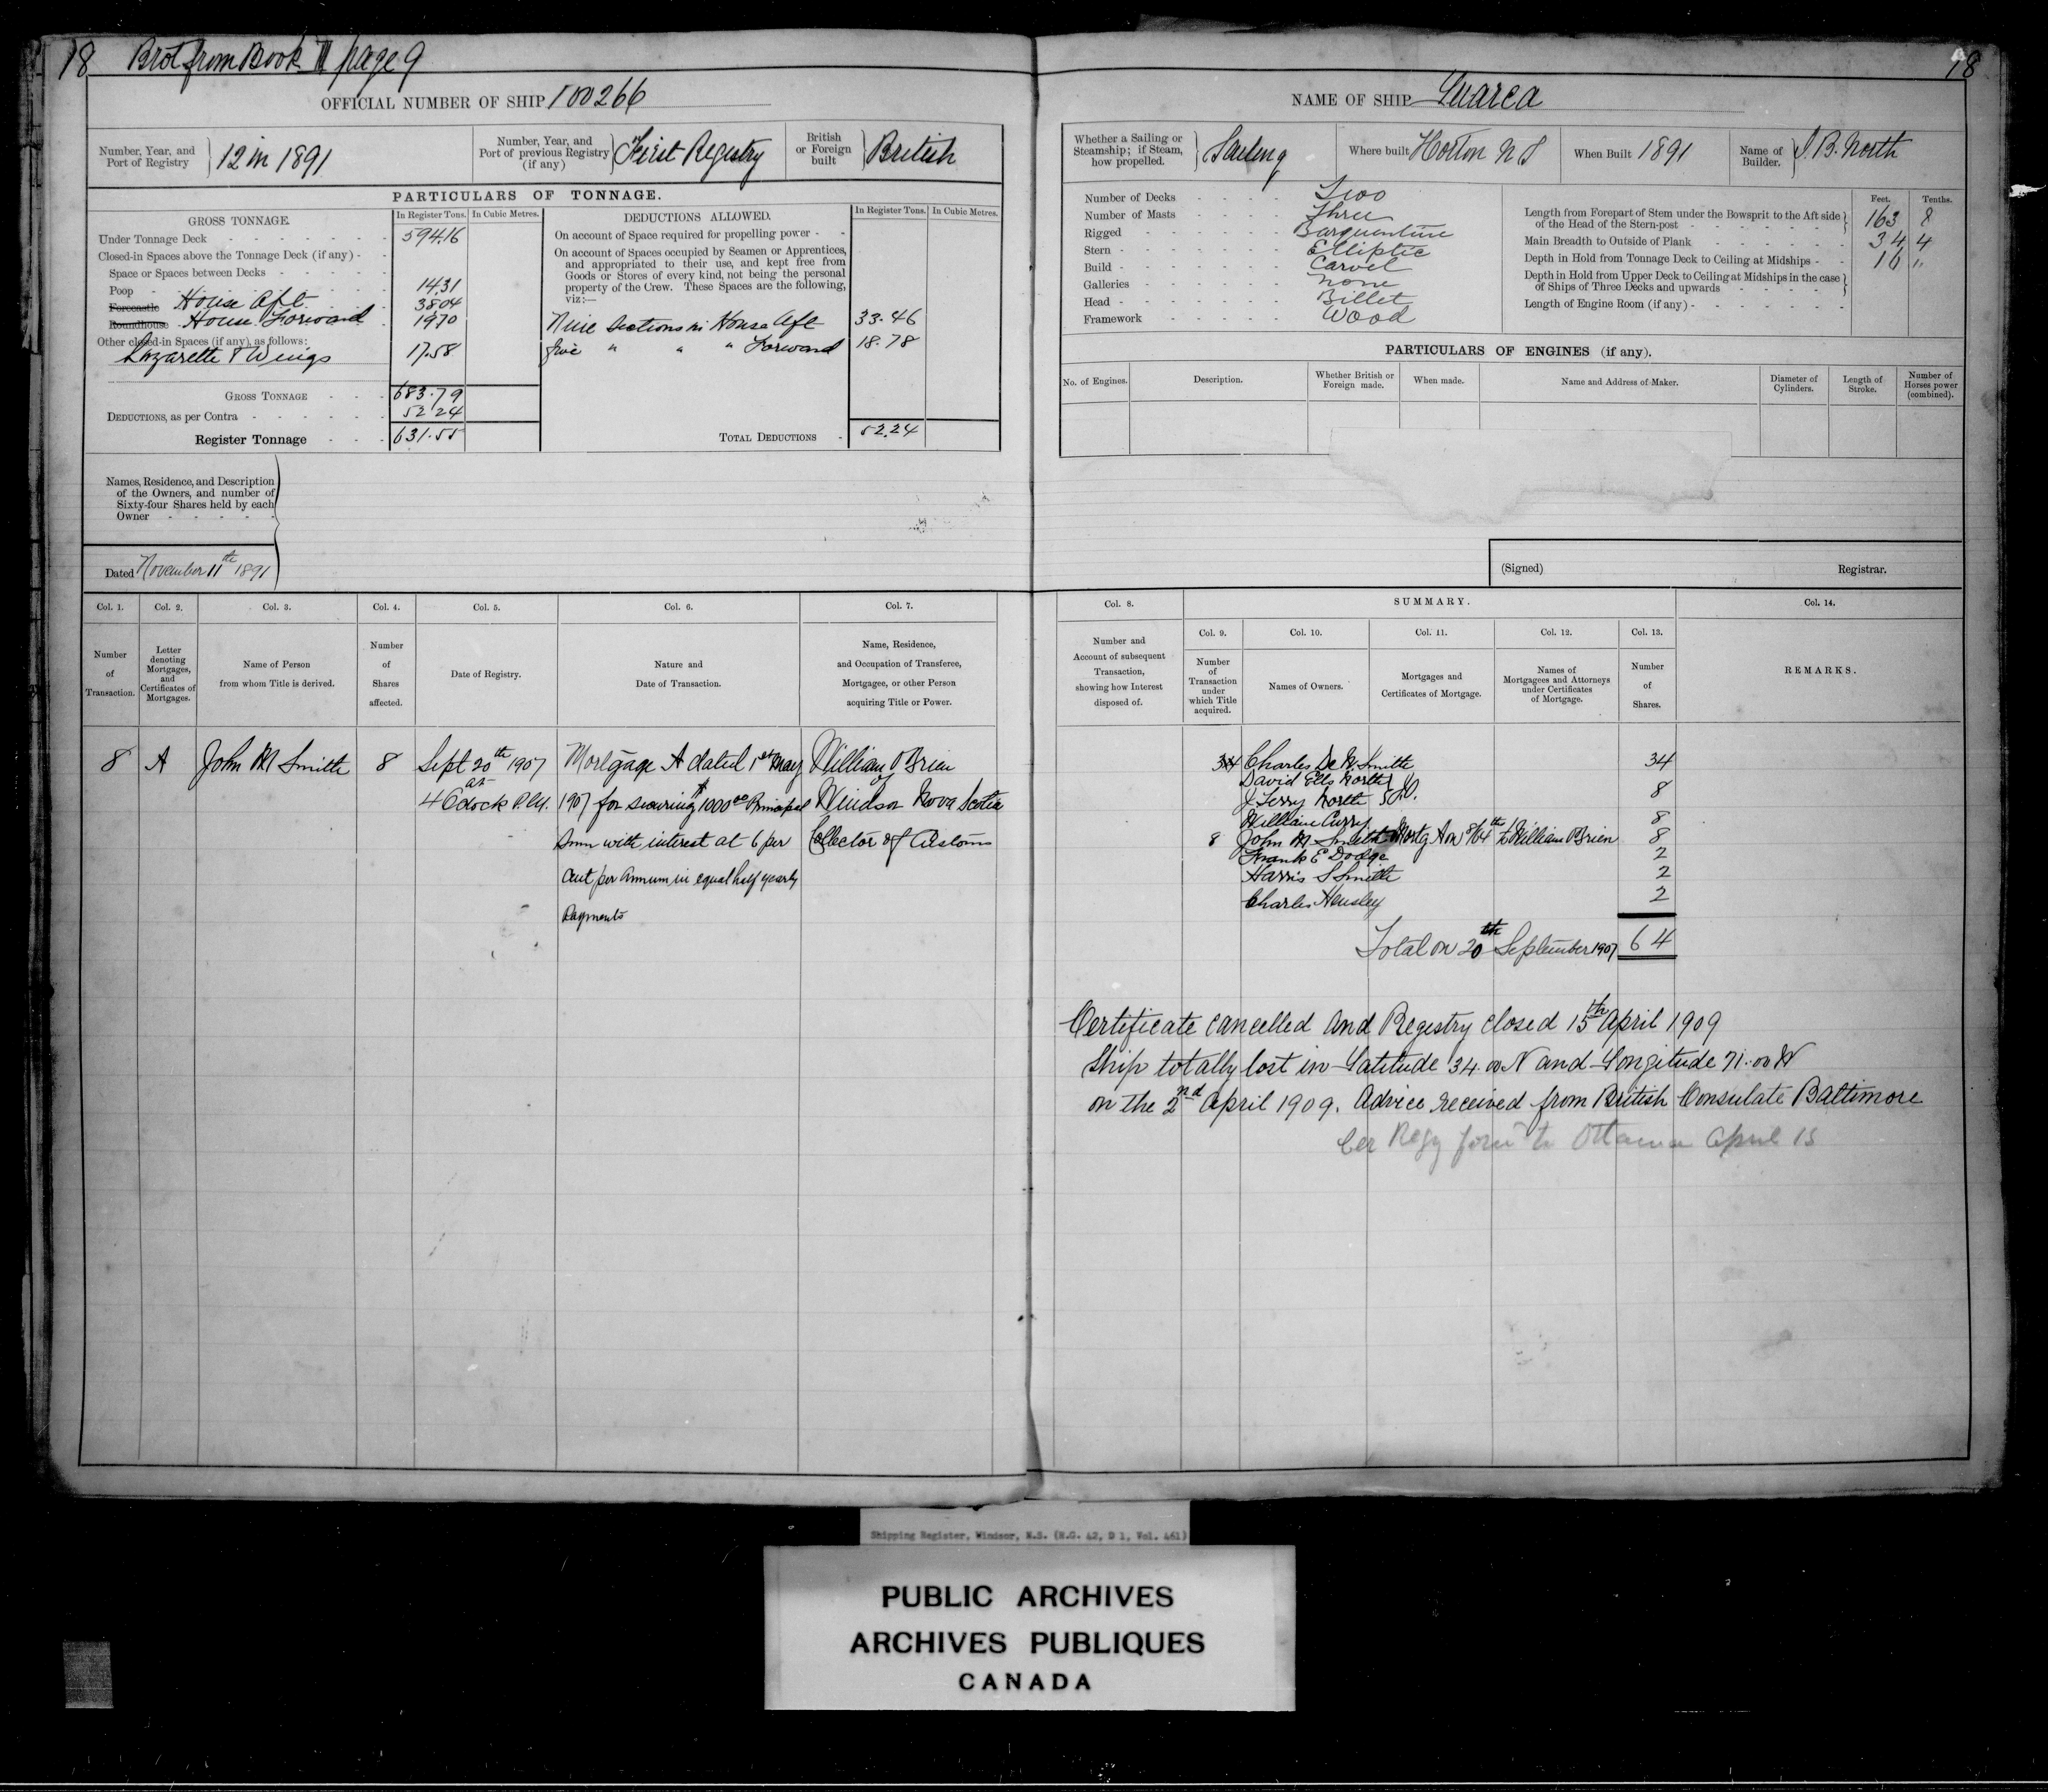 18 Brot from Book II page 9
OFFICIAL NUMBER OF SHIP 100266
Number, Year, and Port of Registry } 12 in 1891
Number, Year, and Port of previous Registry (if any) } First Registry
British or Foreign built } British
PARTICULARS OF TONNAGE.
GROSS TONNAGE. In Register Tons. In Cubic Metres.
Under Tonnage Deck 594.16
Closed-in Spaces above the Tonnage Deck (if any)
Space or Spaces between Decks
Poop 14.31
Forecastle House Aft 38.04
Roundhouse House Forward 19.70
Other closed-in Spaces (if any), as follows:
Lazarette & Wings 17.58
GROSS TONNAGE 683.79
DEDUCTIONS, as per Contra 52.24
Register Tonnage 631.55
DEDUCTIONS ALLOWED. In Register Tons. In Cubic Metres.
On account of Space required for propelling power
On account of Spaces occupied by Seamen or Apprentices,
and appropriated to their use, and kept free from
Goods or Stores of every kind, not being the personal
property of the Crew. These Spaces are the following,
viz:—
Nine Sections in House Aft 33.46
five " " " Forward 18.78
TOTAL DEDUCTIONS 52.24
Names, Residence, and Description
of the Owners, and number of
Sixty-four Shares held by each
Owner
Dated November 11th 1891
Col. 1. Col. 2. Col. 3. Col. 4. Col. 5. Col. 6. Col. 7.
Number of Transaction.
Letter denoting Mortgages, and Certificates of Mortgages.
Name of Person from whom Title is derived.
Number of Shares affected.
Date of Registry.
Nature and Date of Transaction.
Name, Residence, and Occupation of Transferee, Mortgagee, or other Person acquiring Title or Power.
8 A John M Smith 8 Sept 20th 1907 Mortgage A dated 1st May William O'Brien
at of
4 Oclock P.M. 1907 for securing $1000.00 Principal Windsor Nova Scotia
Sum with interest at 6 per Collector of Customs
Cent per Annum in equal half yearly
Payments
18
NAME OF SHIP Luarca
Whether a Sailing or Steamship; if Steam, how propelled. } Sailing
Where built Horton N S
When Built 1891
Name of Builder. } J. B. North
Number of Decks Two
Number of Masts Three
Rigged Barquentine
Stern Elliptic
Build Carvel
Galleries None
Head Billet
Framework Wood
Feet. Tenths.
Length from Forepart of Stem under the Bowsprit to the Aft side of the Head of the Stern-post 163 8
Main Breadth to Outside of Plank 34 4
Depth in Hold from Tonnage Deck to Ceiling at Midships 16 "
Depth in Hold from Upper Deck to Ceiling at Midships in the case of Ships of Three Decks and upwards
Length of Engine Room (if any)
PARTICULARS OF ENGINES (if any).
No. of Engines. Description. Whether British or Foreign made. When made. Name and Address of Maker. Diameter of Cylinders. Length of Stroke. Number of Horses power (combined).
(Signed) Registrar.
Col. 8. SUMMARY. Col. 14.
Col. 9. Col. 10. Col. 11. Col. 12. Col. 13.
Number and Account of subsequent Transaction, showing how Interest disposed of.
Number of Transaction under which Title acquired.
Names of Owners.
Mortgages and Certificates of Mortgage.
Names of Mortgagees and Attorneys under Certificates of Mortgage.
Number of Shares.
REMARKS.
Charles De W. Smith 34
David Ells North
J Terry North } J.O. 8
William Curry 8
8 John M. Smith Mortg A on 8/64th to William O'Brien 8
Frank E Dodge 2
Harris S Smith 2
Charles Hensley 2
Total on 20th September 1907 64
Certificate cancelled and Registry closed 15th April 1909
Ship totally lost in Latitude 34.00 N and Longitude 71.00 W
on the 2nd April 1909. Advice received from British Consulate Baltimore
Cer Regy to Ottawa April 15
Shipping Register, Windsor, N.S. (R.G. 42, D 1, Vol. 461)
PUBLIC ARCHIVES
ARCHIVES PUBLIQUES
CANADA